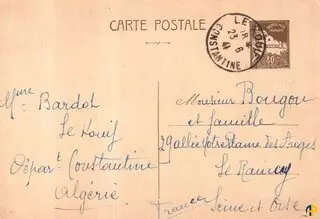 CARTE POSTALE
LE KOUIF
23 - 6
41
CONSTANTINE
80
Mme Bardol
Le Kouif
Départ Constantine
Algérie
Monsieur Bougon
et famille
29 allée Notre Dame des Anges
Le Raincy
Seine et Oise
France